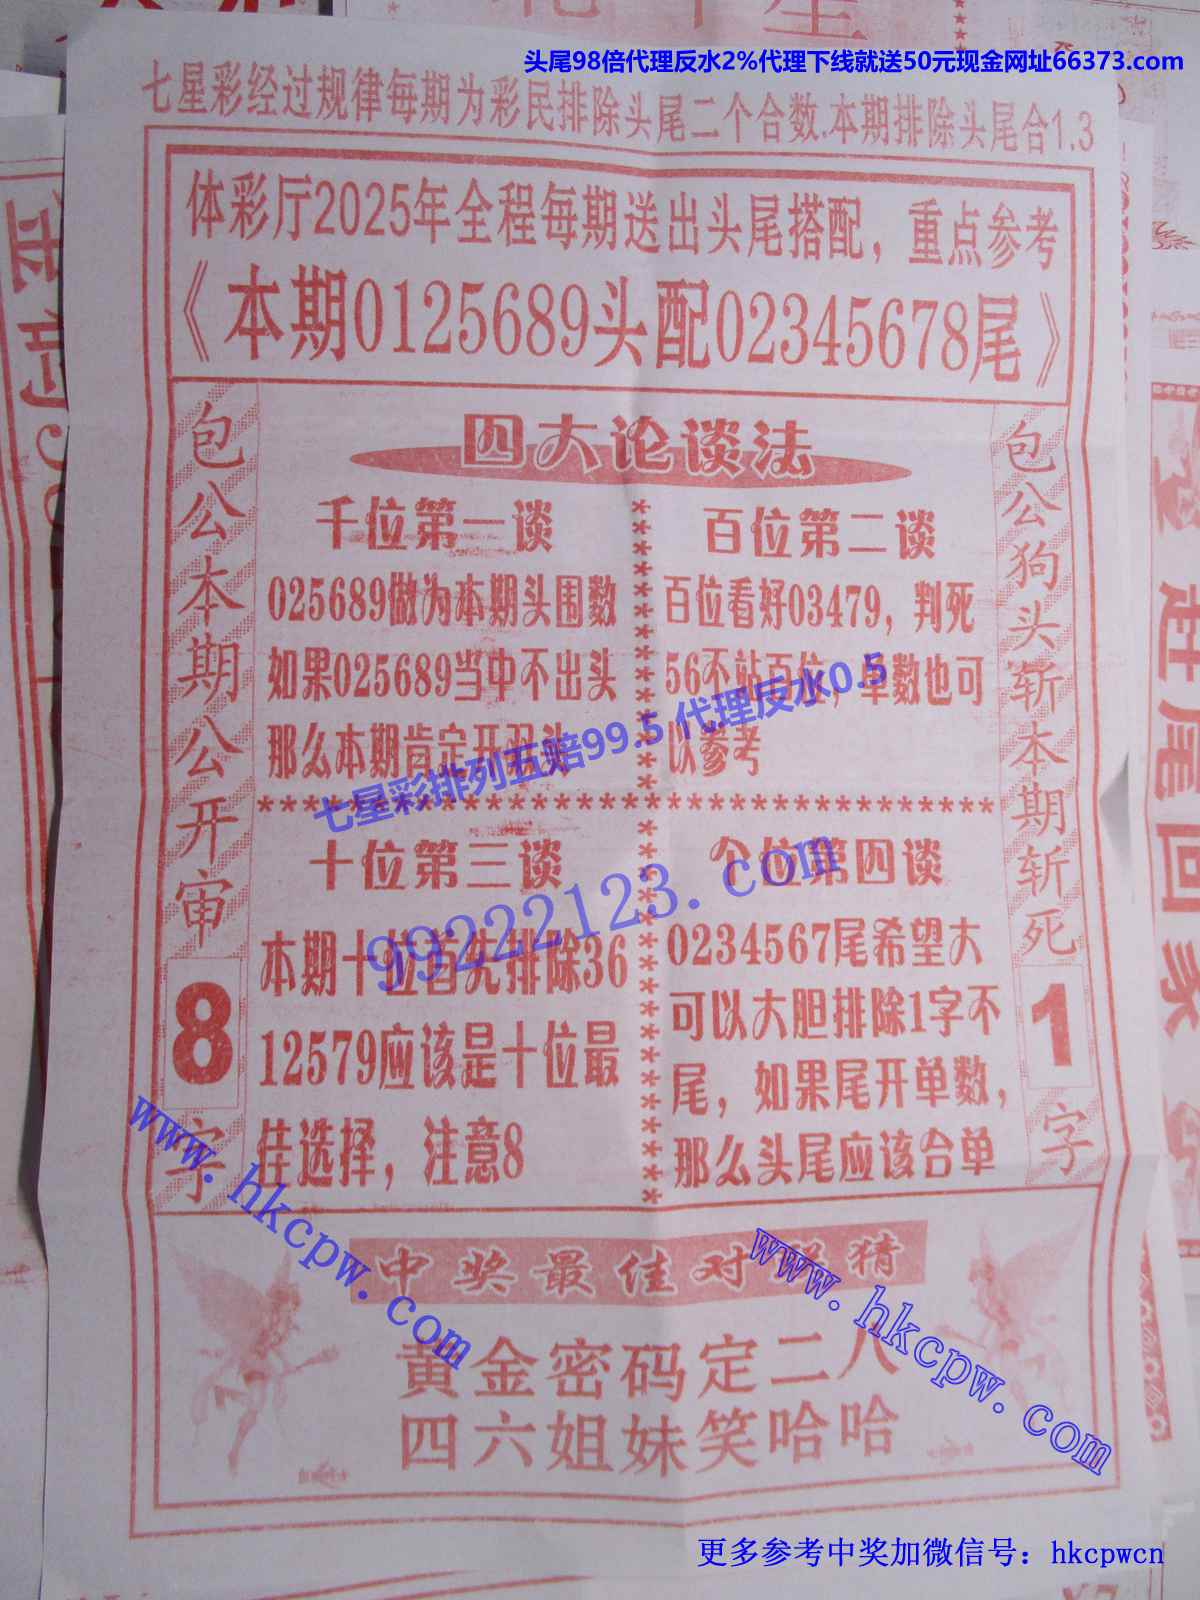 头尾98倍代理反水2%代理下线就送50元现金网址66373.com
七星彩经过规律每期为彩民排除头尾二个合数.本期排除头尾合1.3
体彩厅2025年全程每期送出头尾搭配，重点参考
《本期0125689头配02345678尾》
包公本期公开审
8
字
四大论谈法
千位第一谈
025689做为本期头围数
如果025689当中不出头
那么本期肯定开
百位第二谈
百位看好03479，判死
56不站百位，单数也可
以参考
七星彩排列五赔99.5 代理反水0.5
99222123.com
十位第三谈
本期十位首先排除36
12579应该是十位最
佳选择，注意8
个位第四谈
0234567尾希望大
可以大胆排除1字不
尾，如果尾开单数，
那么头尾应该合单
包公狗头斩本期斩死
1
字
www.hkcpw.com
www.hkcpw.com
中奖最佳对联猜
黄金密码定二八
四六姐妹笑哈哈
更多参考中奖加微信号：hkcpwcn
赶尾回家